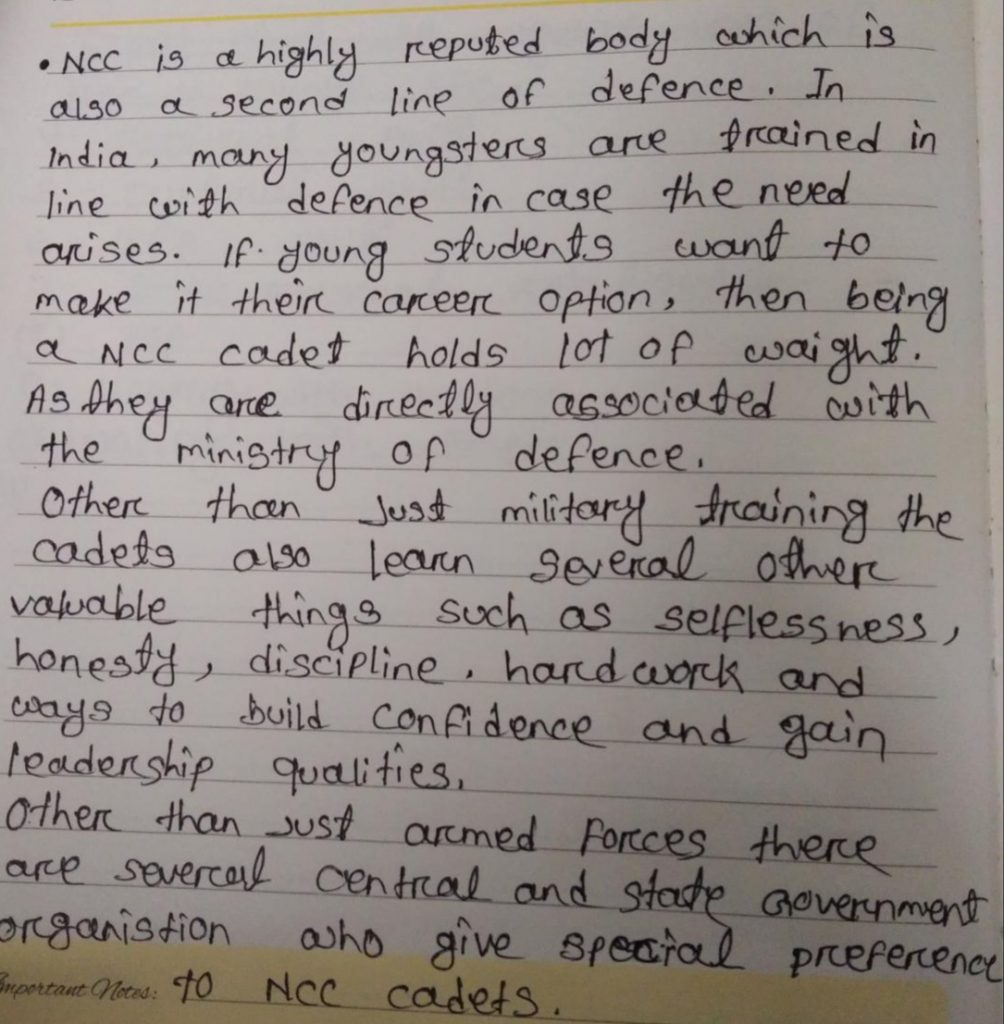 • NCC is a highly reputed body which is
also a second line of defence. In
India, many youngsters are trained in
line with defence in case the need
arises. If young students want to
make it their career option, then being
a NCC cadet holds lot of waight.
As they are directly associated with
the ministry of defence.
Other than Just military training the
cadets also learn several other
valuable things such as selflessness,
honesty, discipline, hard work and
ways to build confidence and gain
leadership qualities.
Other than Just armed Forces there
are several central and state Government
organistion who give special preference
Important Notes: to NCC cadets.